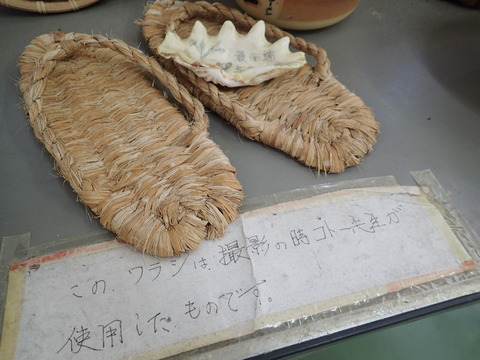 この、ワラジは、撮影の時コトー先生が
使用した、ものです。